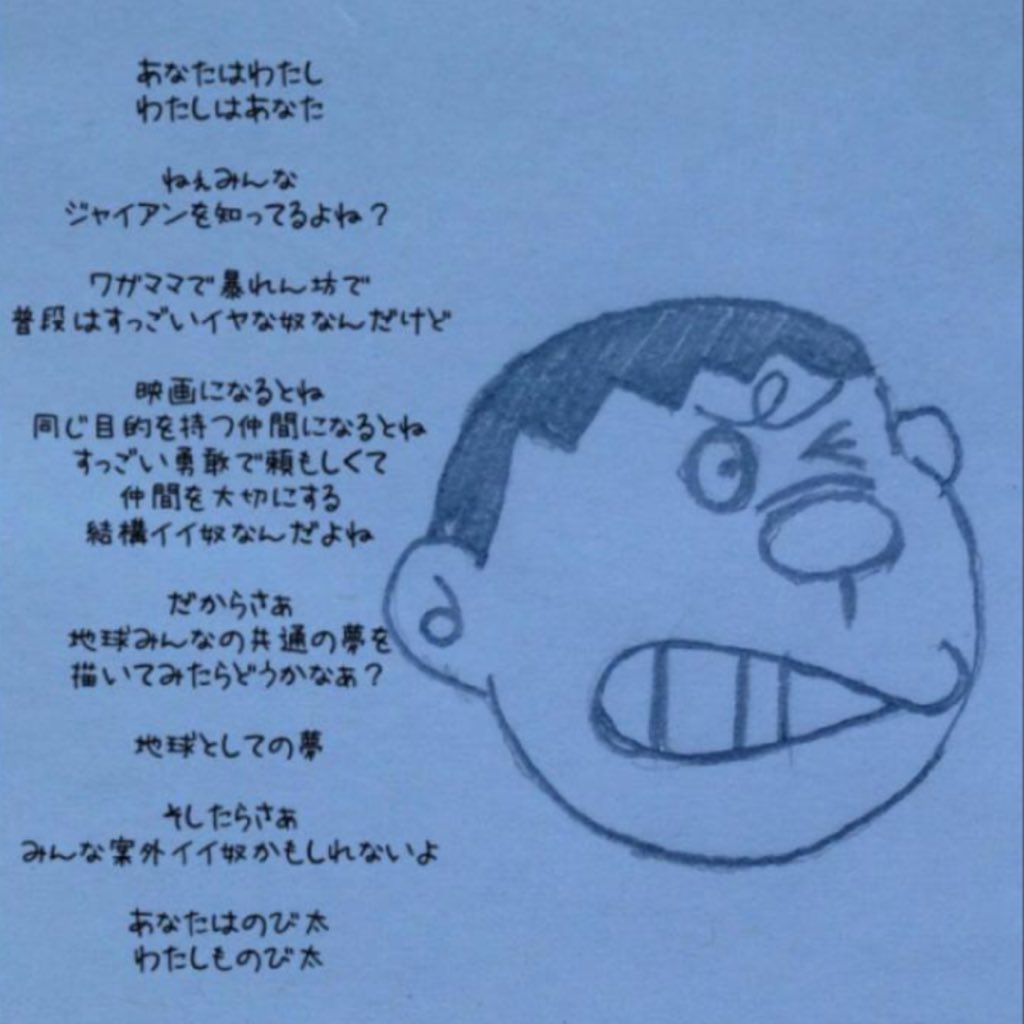 あなたはわたし
わたしはあなた
ねぇみんな
ジャイアンを知ってるよね？
ワガママで暴れん坊で
普段はすっごいイヤな奴なんだけど
映画になるとね
同じ目的を持つ仲間になるとね
すっごい勇敢で頼もしくて
仲間を大切にする
結構イイ奴なんだよね
だからさぁ
地球みんなの共通の夢を
描いてみたらどうかなぁ？
地球としての夢
そしたらさぁ
みんな案外イイ奴かもしれないよ
あなたはのび太
わたしものび太